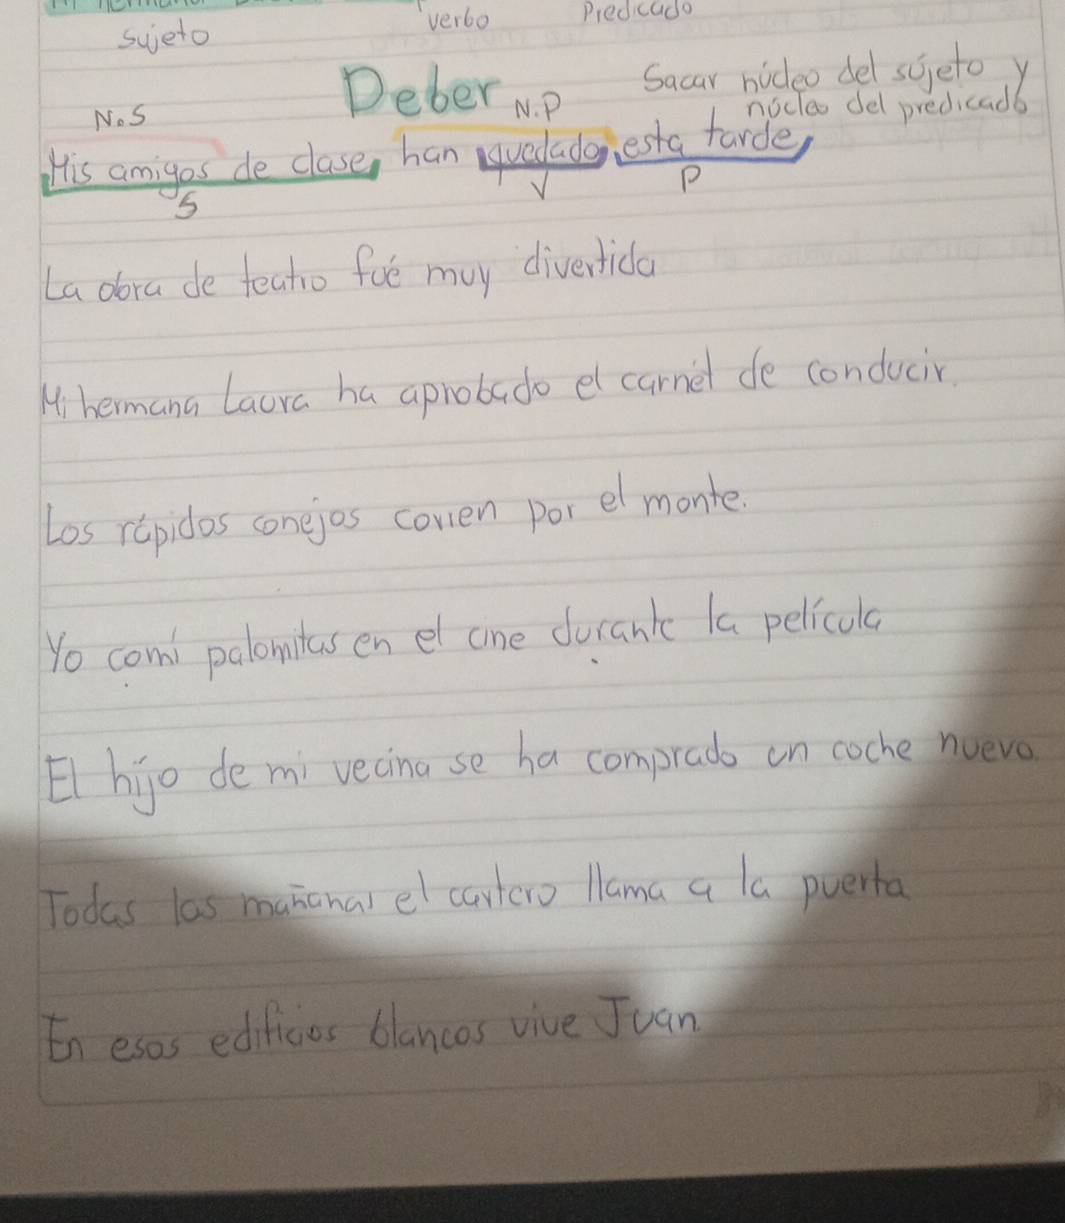 sujeto
verbo
Predicado
Deber
Sacar núcleo del sújeto y
núcleo del predicado
N.S
N.P
Mis amigos de clase, han quedado esta tarde,
S
V
P
La obra de teatro fué muy divertida
Mi hermana Laura ha aprobado el carnét de conducir.
Los rápidos conejos corren por el monte.
Yo comí palomitas en el cine durante la película
El hijo de mi vecina se ha comprado un coche nuevo.
Todas las mañanas el cartero llama a la puerta
En esos edificios blancos vive Juan